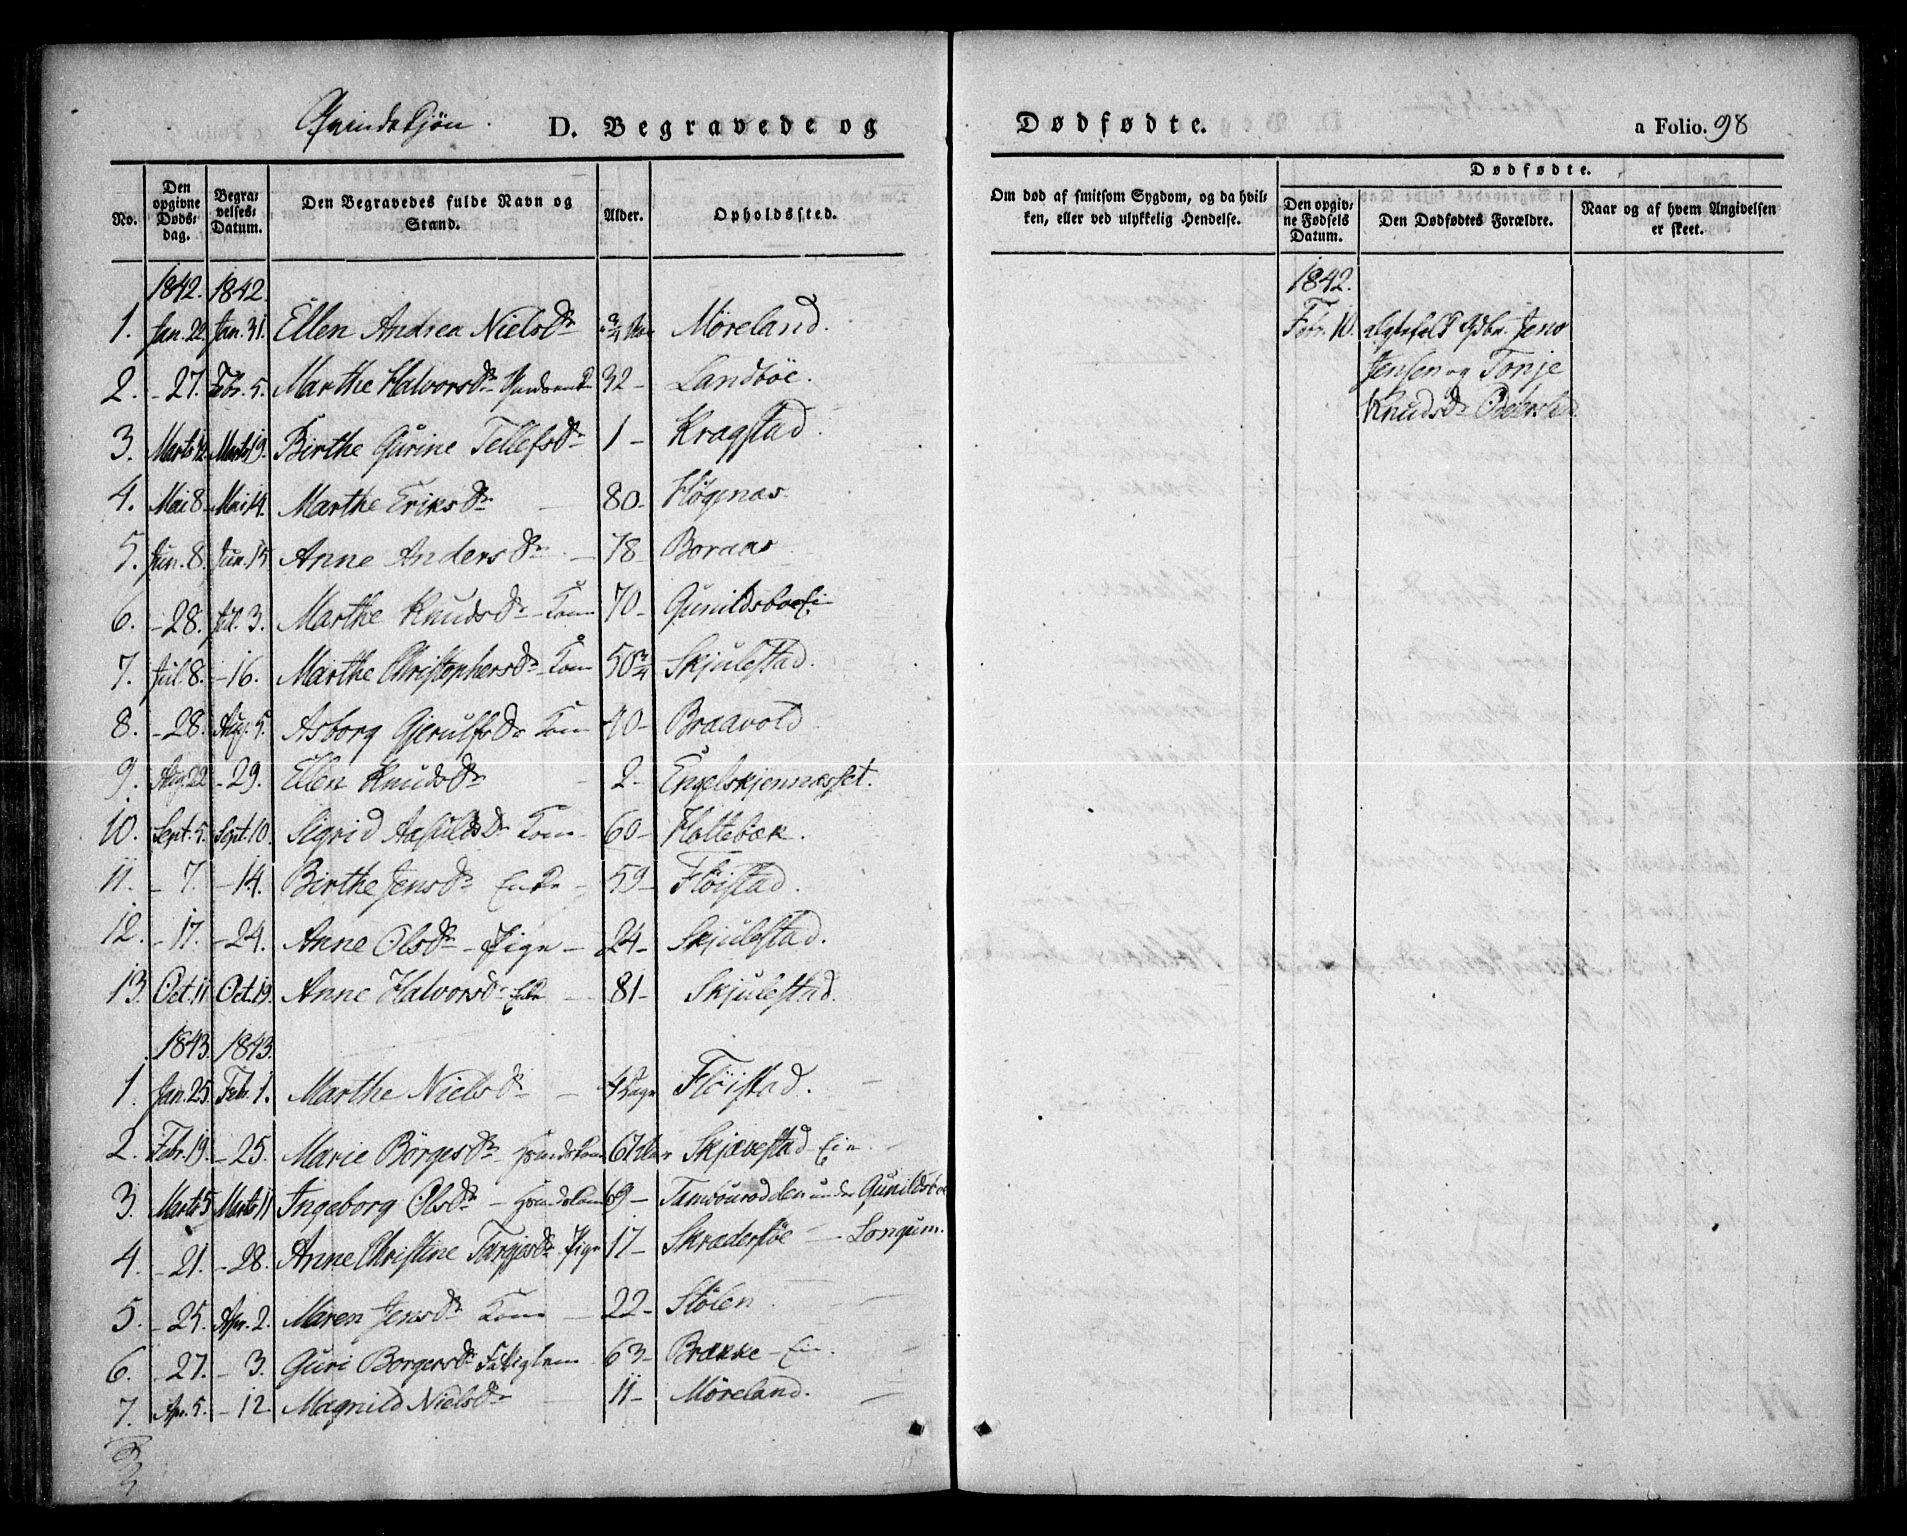 Qvindekjön. D. Begravede og
No. Den opgivne Døds-dag. Begravelses-Datum. Den Begravedes fulde Navn og Stand. Alder. Opholdssted.
1842. 1842.
1. Jan. 22. Jan. 31. Ellen Andrea Nielsdr 3/4 Aar Møreland.
2. - 27. Febr. 5. Marthe Halvorsdr 32 - Landbøe.
3. Marts 12. Marts 19. Birthe Gurine Tellefsdr 1 - Kragstad.
4. Mai 8. Mai 14. Marthe Eriksdr - 80 - Høgenæs.
5. Jun. 8. Jun. 15. Anne Andersdr - 78 - Boraas
6. - 28. Jul. 3. Marthe Knudsdr Kone 70 - Gunildsboe
7. Jul. 8. - 16. Marthe Christophersdr Kone 50 3/4 Skjulestad.
8. - 28. Aug. 5. Asborg Gjerulfsdr Kone 40 - Braavold
9. Aug. 22 - 29. Ellen Knudsdr - 2 - Engelskjennæsset.
10. Sept. 5. Sept. 10. Sigrid Aasulfsdr Kone - 60 - Holtebæk.
11. - 7. - 14. Birthe Jensdr Enke - 59 - Fløistad.
12. - 17. - 24. Anne Olsdr - Pige - 24 - Skjulestad.
13. Oct. 11 Oct. 19. Anne Halvorsdr Enke - 81 - Skjulestad.
1843. 1843.
1. Jan. 25. Febr. 1. Marthe Nielsdr - 4 Dage Fløistad. -
2. Febr. 19. - 25. Marie Børgesdr 67 Aar Skjævestad Eie. -
3. Marts 5 Marts 11 Ingeborg Olsdr - 69 - Tambourodden under Gunildsboe
4. - 21. - 28. Anne Christine Targjesdr Pige 17 - Skræderstøe - Longum.
5. - 25. Apr. 2. Maren Jensdr Kone - 22 - Stølen.
6. - 27. - 3. Guri Borgersdr Fattiglem 63 - Brække - Eie.
7. Apr. 5. - 12. Magnild Nielsdr - 11 - Møreland.
Dødfødte. a Folio. 98
Om død af smitsom Sygdom, og da hvilken, eller ved ulykkelig Hendelse. Dødfødte.
Den opgivne Fødsels Datum. Den Dødfødtes Forældre. Naar og af hvem Angivelsen er skeet.
1842.
Febr. 10. Jens
Jensen og Tonje
Knudsdr